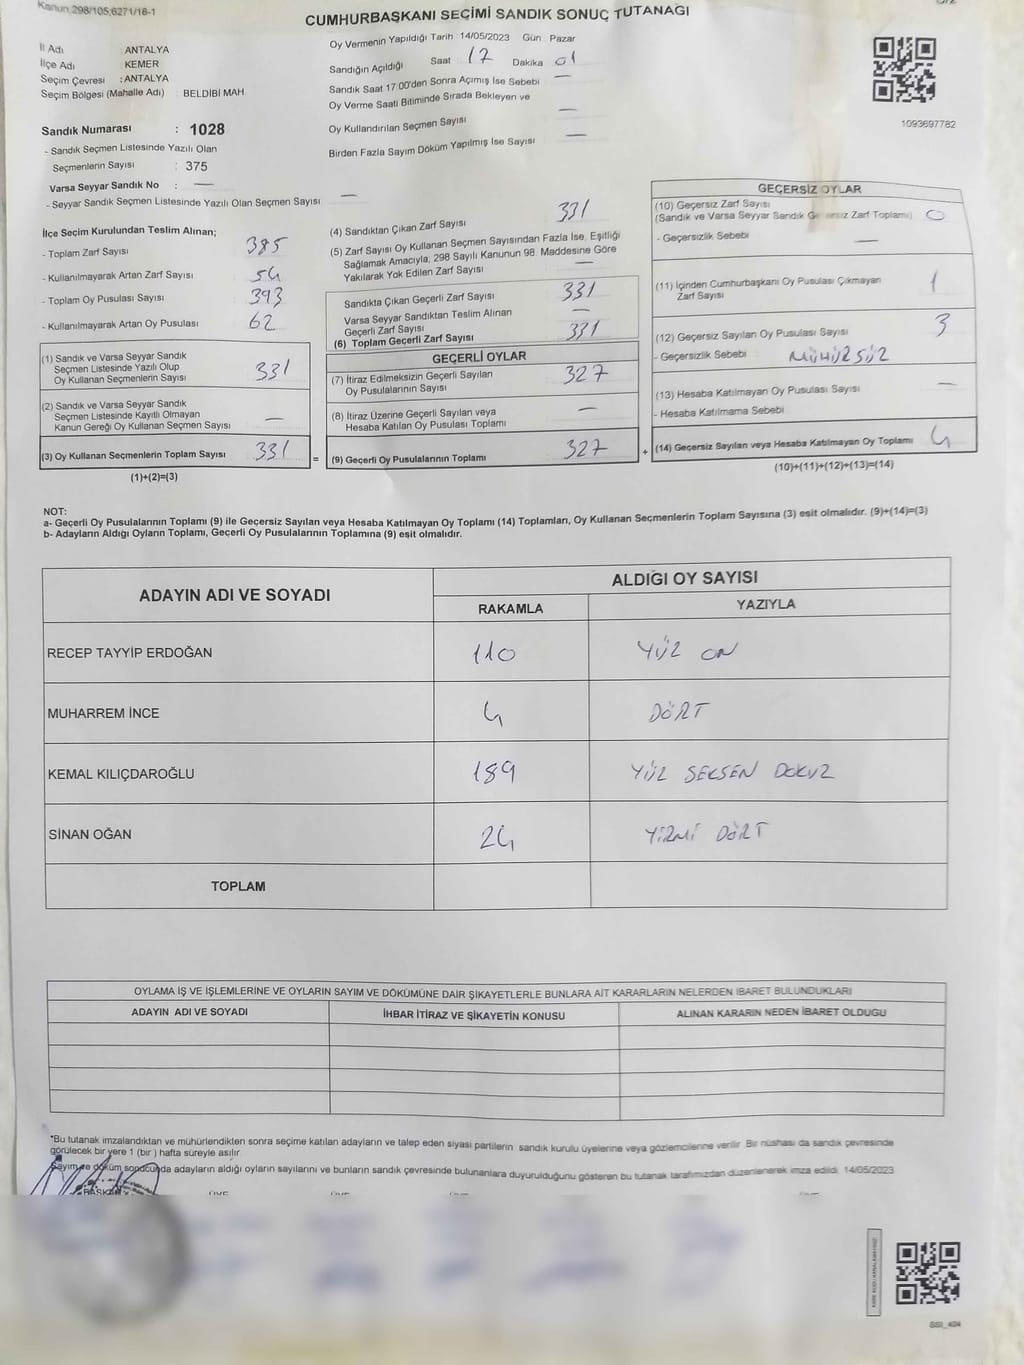 Kanun,298/105,6271/18-1
CUMHURBAŞKANI SEÇİMİ SANDIK SONUÇ TUTANAĞI
İl Adı : ANTALYA
İlçe Adı : KEMER
Seçim Çevresi : ANTALYA
Seçim Bölgesi (Mahalle Adı) : BELDİBİ MAH.
Sandık Numarası : 1028
- Sandık Seçmen Listesinde Yazılı Olan
Seçmenlerin Sayısı : 375
Varsa Seyyar Sandık No : —
- Seyyar Sandık Seçmen Listesinde Yazılı Olan Seçmen Sayısı —
Oy Vermenin Yapıldığı Tarih :14/05/2023 Gün Pazar
Sandığın Açıldığı Saat 17 Dakika 01
Sandık Saat 17:00'den Sonra Açımış İse Sebebi —
Oy Verme Saati Bitiminde Sırada Bekleyen ve
Oy Kullandırılan Seçmen Sayısı —
Birden Fazla Sayım Döküm Yapılmış İse Sayısı —
1093697782
İlçe Seçim Kurulundan Teslim Alınan;
- Toplam Zarf Sayısı 385
- Kullanılmayarak Artan Zarf Sayısı 54
- Toplam Oy Pusulası Sayısı 393
- Kullanılmayarak Artan Oy Pusulası 62
(1) Sandık ve Varsa Seyyar Sandık
Seçmen Listesinde Yazılı Olup
Oy Kullanan Seçmenlerin Sayısı 331
(2) Sandık ve Varsa Seyyar Sandık
Seçmen Listesinde Kayıtlı Olmayan
Kanun Gereği Oy Kullanan Seçmen Sayısı —
(3) Oy Kullanan Seçmenlerin Toplam Sayısı 331 =
(1)+(2)=(3)
(4) Sandıktan Çıkan Zarf Sayısı 331
(5) Zarf Sayısı Oy Kullanan Seçmen Sayısından Fazla İse, Eşitliği
Sağlamak Amacıyla; 298 Sayılı Kanunun 98. Maddesine Göre
Yakılarak Yok Edilen Zarf Sayısı —
Sandıkta Çıkan Geçerli Zarf Sayısı 331
Varsa Seyyar Sandıktan Teslim Alınan
Geçerli Zarf Sayısı —
(6) Toplam Geçerli Zarf Sayısı 331
GEÇERLİ OYLAR
(7) İtiraz Edilmeksizin Geçerli Sayılan
Oy Pusulalarının Sayısı 327
(8) İtiraz Üzerine Geçerli Sayılan veya
Hesaba Katılan Oy Pusulası Toplamı —
(9) Geçerli Oy Pusulalarının Toplamı 327 +
GEÇERSİZ OYLAR
(10) Geçersiz Zarf Sayısı
(Sandık ve Varsa Seyyar Sandık Geçersiz Zarf Toplamı) 0
- Geçersizlik Sebebi —
(11) İçinden Cumhurbaşkanı Oy Pusulası Çıkmayan
Zarf Sayısı 1
(12) Geçersiz Sayılan Oy Pusulası Sayısı 3
- Geçersizlik Sebebi MÜHÜRSÜZ
(13) Hesaba Katılmayan Oy Pusulası Sayısı —
- Hesaba Katılmama Sebebi
(14) Geçersiz Sayılan veya Hesaba Katılmayan Oy Toplamı 4
(10)+(11)+(12)+(13)=(14)
NOT:
a- Geçerli Oy Pusulalarının Toplamı (9) ile Geçersiz Sayılan veya Hesaba Katılmayan Oy Toplamı (14) Toplamları, Oy Kullanan Seçmenlerin Toplam Sayısına (3) eşit olmalıdır. (9)+(14)=(3)
b- Adayların Aldığı Oyların Toplamı, Geçerli Oy Pusulalarının Toplamına (9) eşit olmalıdır.
ADAYIN ADI VE SOYADI
ALDIĞI OY SAYISI
RAKAMLA YAZIYLA
RECEP TAYYİP ERDOĞAN 110 YÜZ ON
MUHARREM İNCE 4 DÖRT
KEMAL KILIÇDAROĞLU 189 YÜZ SEKSEN DOKUZ
SİNAN OĞAN 24 YİRMİ DÖRT
TOPLAM
OYLAMA İŞ VE İŞLEMLERİNE VE OYLARIN SAYIM VE DÖKÜMÜNE DAİR ŞİKAYETLERLE BUNLARA AİT KARARLARIN NELERDEN İBARET BULUNDUKLARI
ADAYIN ADI VE SOYADI İHBAR İTİRAZ VE ŞİKAYETİN KONUSU ALINAN KARARIN NEDEN İBARET OLDUĞU
"Bu tutanak imzalandıktan ve mühürlendikten sonra seçime katılan adayların ve talep eden siyasi partilerin sandık kurulu üyelerine veya gözlemcilerine verilir. Bir nüshası da sandık çevresinde
görülecek bir yere 1 (bir) hafta süreyle asılır.
Sayım ve döküm sonucunda adayların aldığı oyların sayılarını ve bunların sandık çevresinde bulunanlara duyurulduğunu gösteren bu tutanak tarafımızdan düzenlenerek imza edildi. 14/05/2023
BAŞKAN